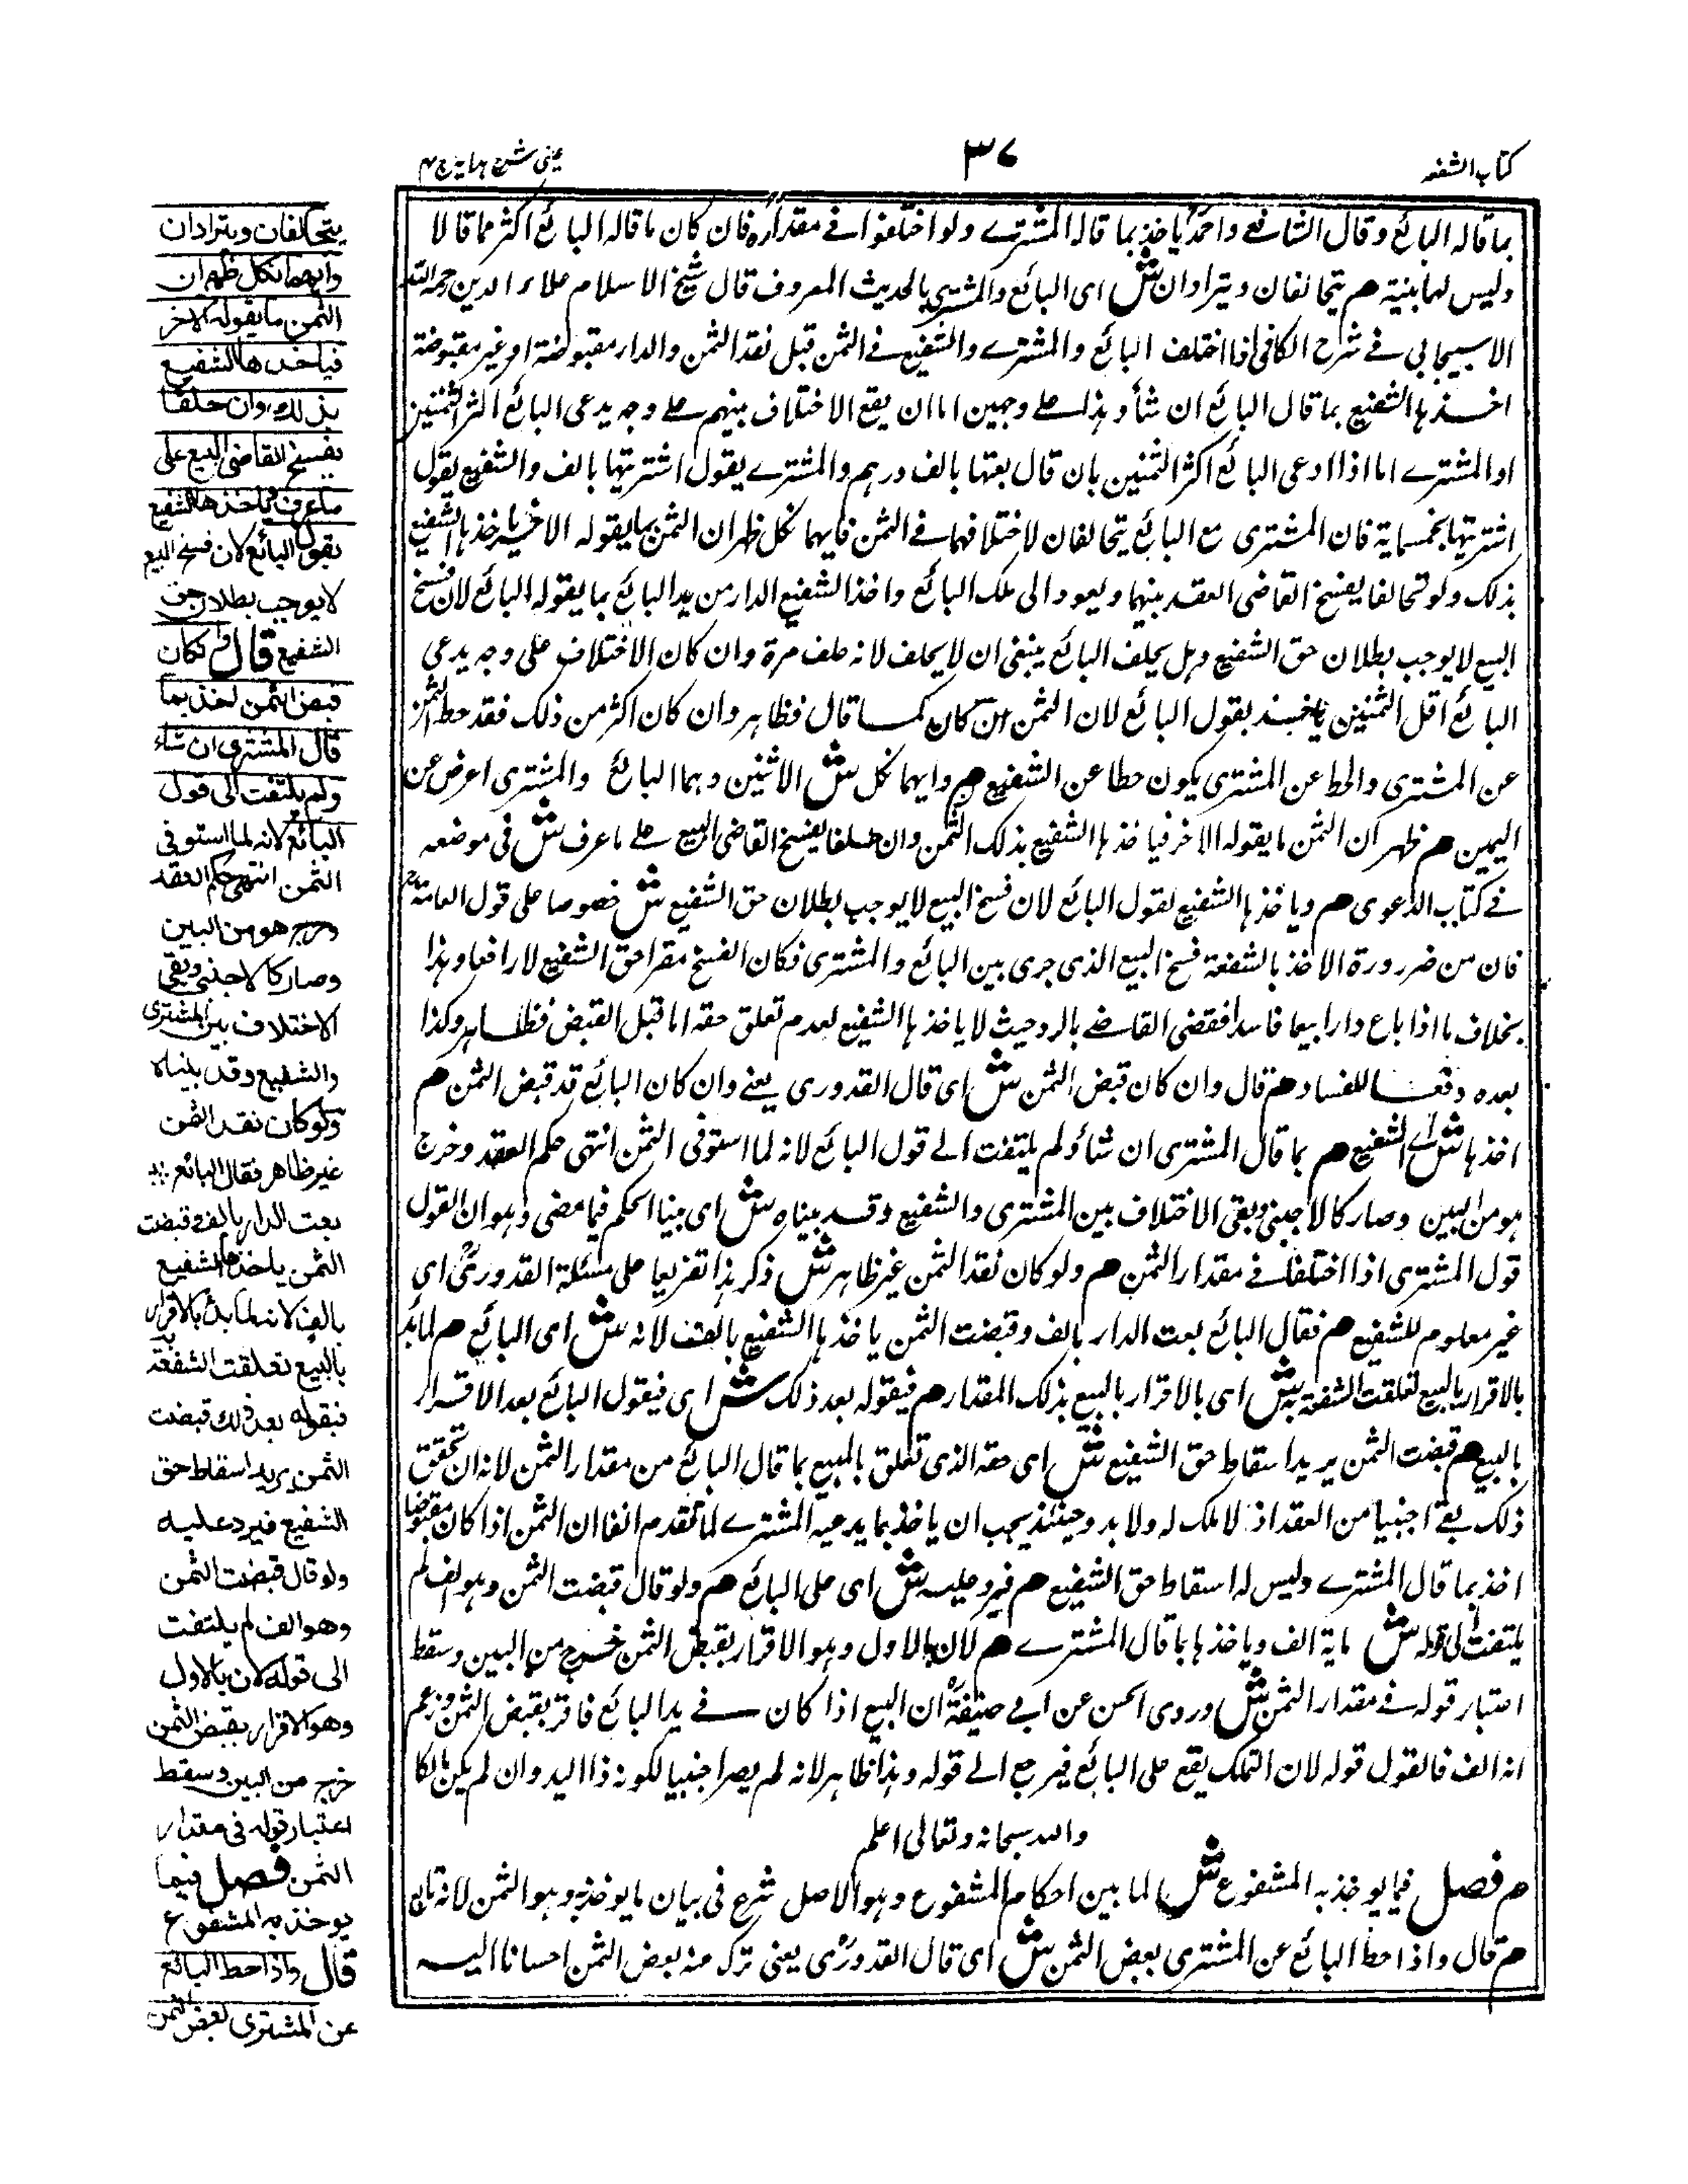 كتاب الشفعه
٣٧
عينى شرح هدايه ج ٤
بما قاله البائع وقال الشافعے واحمد ياخذ بما قاله المشترے ولو اختلفوا فے مقداره فان كان ما قاله البائع اكثر مما قالا
وليس لهما بنية هم يتحالفان ويترادان ش اى البائع والمشترى بالحديث المعروف قال شيخ الاسلام علاء الدين رحمه الله
الاسبيجابى فے شرح الكافى اذا اختلف البائع والمشترے والشفيع فے الثمن قبل نقد الثمن والدار مقبوضة او غير مقبوضة
اخذها الشفيع بما قال البائع ان شاء وهذا علے وجهين اما ان يقع الاختلاف بينهم علے وجه يدعى البائع اكثر الثمنين
او المشترے اما اذا ادعى البائع اكثر الثمنين بان قال بعتها بالف درهم والمشترے يقول اشتريتها بالف والشفيع يقول
اشتريتها بخمسماية فان المشترى مع البائع يتحالفان لاختلافهما فے الثمن فايهما نكل ظهر ان الثمن ما يقوله الاخر ياخذها الشفيع
بذلك ولو تحالفا يفسخ القاضى العقد بينهما ويعود الى ملك البائع واخذ الشفيع الدار من يد البائع بما يقوله البائع لان فسخ
البيع لا يوجب بطلان حق الشفيع وهل يحلف البائع ينبغى ان لا يحلف لانه حلف مرة وان كان الاختلاف على وجه يدعى
البائع اقل الثمنين ياخذ بقول البائع لان الثمن ان كان كما قال فظاهر وان كان اكثر من ذلك فقد حط الثمن
عن المشترى والحط عن المشترى يكون حطا عن الشفيع هم وايهما نكل ش الاثنين وهما البائع والمشترى اعرض عن
اليمين هم ظهر ان الثمن ما يقوله الاخر فياخذها الشفيع بذلك الثمن وان حلفا يفسخ القاضى البيع علے ما عرف ش فى موضعه
فے كتاب الدعوى هم وياخذها الشفيع بقول البائع لان فسخ البيع لا يوجب بطلان حق الشفيع ش خصوصا على قول العامة
فان من ضرورة الاخذ بالشفعة فسخ البيع الذى جرى بين البائع والمشترى فكان الفسخ مقرا حق الشفيع لا رافعا وهذا
بخلاف ما اذا باع دارا بيعا فاسدا فقضى القاضے بالرد حيث لا ياخذها الشفيع لعدم تعلق حقه اما قبل القبض فظاهر وكذا
بعده دفعا للفساد هم قال وان كان قبض الثمن ش اى قال القدورى يعنے وان كان البائع قد قبض الثمن هم
اخذها ش اے الشفيع هم بما قال المشترى ان شاء ولم يلتفت الے قول البائع لانه لما استوفى الثمن انتهى حكم العقد وخرج
هو من البين وصار كالاجنبى وبقى الاختلاف بين المشترى والشفيع وقد بيناه ش اى بينا الحكم فيما مضى وهو ان القول
قول المشترى اذا اختلفا فے مقدار الثمن هم ولو كان نقد الثمن غير ظاهر ش ذكر هذا تفريعا على مسئلة القدورى اى
غير معلوم للشفيع هم فقال البائع بعت الدار بالف وقبضت الثمن ياخذها الشفيع بالف لانه ش اى البائع هم لما بدأ
بالاقرار بالبيع تعلقت الشفعة به ش اى بالاقرار بالبيع بذلك المقدار هم فبقوله بعد ذلك ش اى فبقول البائع بعد الاقرار
بالبيع هم قبضت الثمن يريد اسقاط حق الشفيع ش اى حقه الذى تعلق بالمبيع بما قال البائع من مقدار الثمن لانه ان تحقق
ذلك بقے اجنبيا من العقد اذ لا ملك له ولا يد وحينئذ يجب ان ياخذ بما يدعيه المشترے لما تقدم انفا ان الثمن اذا كان مقبوضا
اخذ بما قال المشترے وليس له اسقاط حق الشفيع هم فيرد عليه ش اى على البائع هم ولو قال قبضت الثمن وهو الف لم
يلتفت الى قوله ش ماية الف وياخذها بما قال المشترے هم لان بالاول وهو الاقرار بقبض الثمن خرج من البين وسقط
اعتبار قوله فے مقدار الثمن ش وروى الحسن عن ابے حنيفة ان البيع اذا كان فے يد البائع فاقر بقبض الثمن وزعم
انه الف فالقول قوله لان التملك يقع على البائع فيرجع الے قوله وهذا ظاهر لانه لم يصر اجنبيا لكونه ذا اليد وان لم يكن مالكا
والله سبحانه وتعالى اعلم
م فصل فيما يوخذ به المشفوع ش لما بين احكام المشفوع وهو الاصل شرع فى بيان ما يوخذ به وهو الثمن لانه تابع
م قال واذا حط البائع عن المشترى بعض الثمن ش اى قال القدورى يعنى ترك منه بعض الثمن احسانا اليه
يتحالفان ويترادان
وايهما نكل ظهر ان
الثمن ما يقوله الاخر
فياخذها الشفيع
بذلك وان حلفا
يفسخ القاضى البيع على
ما عرف وياخذها الشفيع
بقول البائع لان فسخ البيع
لا يوجب بطلان حق
الشفيع قال وان كان
قبض الثمن اخذ بما
قال المشترى ان شاء
ولم يلتفت الى قول
البائع لانه لما استوفى
الثمن انتهى حكم العقد
وخرج هو من البين
وصار كالاجنبى وبقى
الاختلاف بين المشترى
والشفيع وقد بيناه
ولو كان نقد الثمن
غير ظاهر فقال البائع
بعت الدار بالف وقبضت
الثمن ياخذها الشفيع
بالف لانه لما بدأ بالاقرار
بالبيع تعلقت الشفعة به
فبقوله بعد ذلك قبضت
الثمن يريد اسقاط حق
الشفيع فيرد عليه
ولو قال قبضت الثمن
وهو الف لم يلتفت
الى قوله لان بالاول
وهو الاقرار بقبض الثمن
خرج من البين وسقط
اعتبار قوله فى مقدار
الثمن فصل فيما
يوخذ به المشفوع
قال واذا حط البائع
عن المشترى بعض الثمن